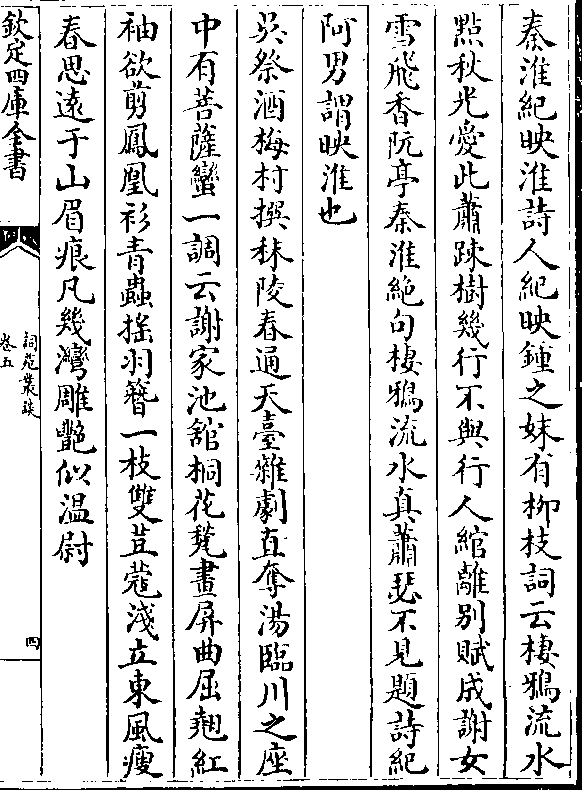 秦淮紀映淮詩人紀映鍾之妹有柳枝詞云棲鴉流水
點秋光愛此蕭疎樹幾行不與行人綰離别賦成謝女
雪飛香阮亭秦淮絶句棲鴉流水真蕭瑟不見題詩紀
阿男謂映淮也
吳祭酒梅村撰秣陵春通天臺雜劇直奪湯臨川之座
中有菩薩蠻一調云謝家池舘桐花甃畫屏曲屈翹紅
袖欲剪鳳凰衫青蟲揺羽簪一枝雙荳蔻淺立東風瘦
春思遠于山眉痕凡幾灣雕艷似温尉
欽定四庫全書
詞苑叢談
卷五
四